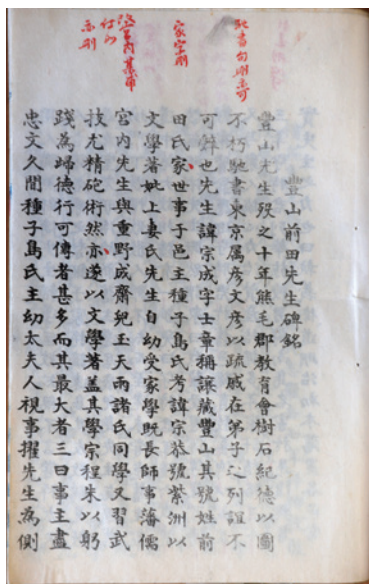 家字刪
豐山前田先生碑銘
豐山先生歿之十年熊毛郡教育會樹石紀德以圖
不朽馳書東京属彦文彦以疏戚在弟子之列誼不
可辭也先生諱宗成字士章稱讓藏豐山其號姓前
田氏家世事于邑主種子島氏考諱宗恭號紫洲以
文學著妣上妻氏先生自幼受家學既長師事藩儒
宮内先生與重野成齋兒玉天雨諸氏同學又習武
技尤精砲術然亦遂以文學著蓋其學宗程朱以躬
踐為歸德行可傳者甚多而其最大者三曰事主盡
忠文久間種子島氏主幼太夫人視事擢先生為側